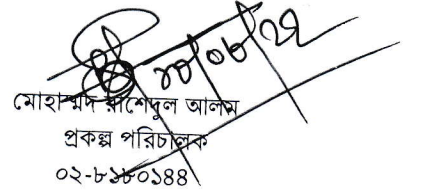 ১০/০৮/২২
মোহাম্মদ রাশেদুল আলম
প্রকল্প পরিচালক
০২-৮১৮০১৪৪